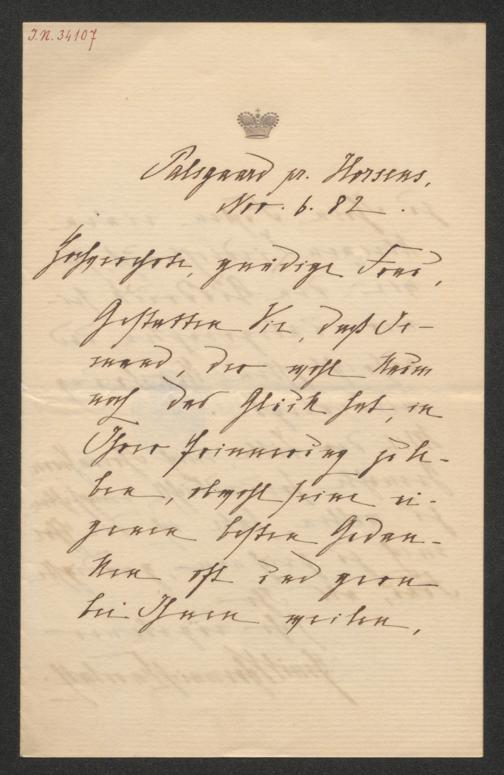 J.N. 34107
Palsgaard pr. Horsens,
Nov. 6. 82.
Hochverehrte, gnädige Frau,
Gestatten Sie, daß Je-
mand, der wohl kaum
noch das Glück hat, in
Ihrer Erinnerung zu le-
ben, obwohl seine ei-
genen besten Gedan-
ken oft und gern
bei Ihnen weilen,